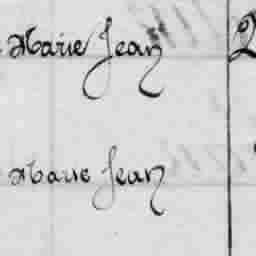 Marie Jean
Marie Jean